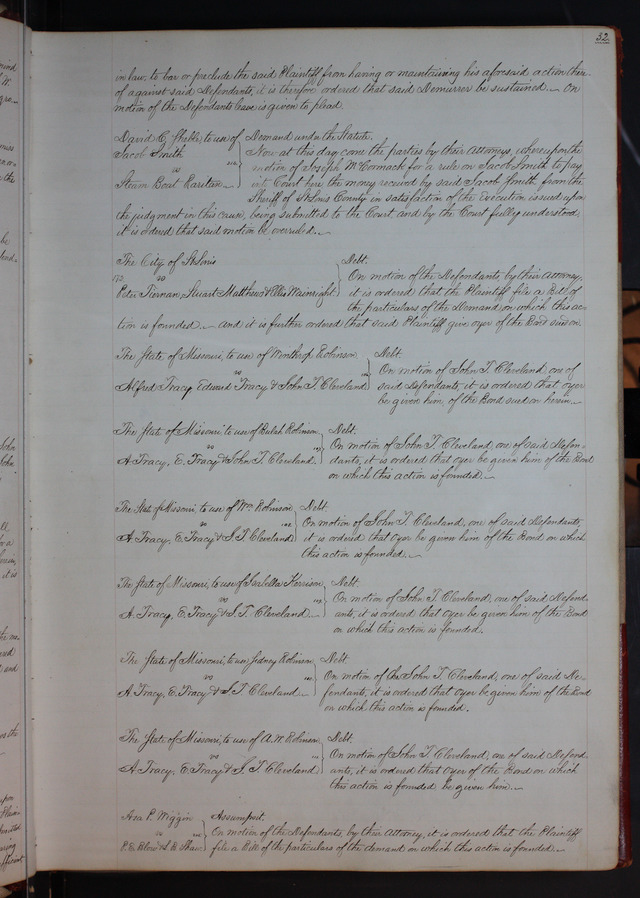 32.
in law, to bar or preclude the said Plaintiff from having or maintaining his aforesaid action there-
of against said Defendants, it is therefore ordered that said Demurrer be sustained. On
motion of the Defendants leave is given to plead.
David C. to use of Demand under the Statute.
Jacob Smith Now at this day come the parties by their Attorneys, whereupon the
vs motion of Joseph McCormack for a rule on Jacob Smith to pay
Steam Boat Raritan into Court here the money received by said Jacob Smith from the
Sheriff of St Louis County in satisfaction of the Execution issued upon
the judgment in this cause, being submitted to the Court and by the Court fully understood,
it is ordered that said motion be overruled.
The City of St Louis Debt.
vs On motion of the Defendants, by their Attorney,
Peter Tiernan, Stuart Matthews & Ellis Wainright it is ordered that the Plaintiff file a Bill of
the particulars of the Demand on which this ac-
tion is founded. and it is further ordered that said Plaintiff give oyer of the Bond sued on.
The State of Missouri, to use of Winthrop Robinson Debt.
vs On motion of John T. Cleveland, one of
Alfred Tracy, Edward Tracy & John T. Cleveland said Defendants, it is ordered that oyer
be given him, of the Bond sued on herein.
The State of Missouri to use of Bulah Robinson Debt.
vs On motion of John T. Cleveland, one of said Defen-
A Tracy, E. Tracy & John T. Cleveland. dants, it is ordered that oyer be given him of the Bond
on which this action is founded.
The State of Missouri, to use of Wm. Robinson Debt.
vs On motion of John T. Cleveland, one of said Defendants,
A. Tracy, E. Tracy & J. T. Cleveland it is ordered that Oyer be given him of the Bond on which
this action is founded.
The State of Missouri, to use of Isabella Debt.
vs On motion of John T. Cleveland, one of said Defend-
A. Tracy, E. Tracy & J. T. Cleveland. ants, it is ordered that Oyer be given him of the Bond
on which this action is founded.
The State of Missouri, to use Sidney Robinson Debt.
vs On motion of the John T. Cleveland, one of said De-
A Tracy, E. Tracy & J T Cleveland fendants, it is ordered that oyer be given him of the Bond
on which this action is founded.
The State of Missouri, to use of A. W. Robinson Debt.
vs On motion of John T. Cleveland, one of said Defend
A. Tracy, E. Tracy & J. T. Cleveland ants, it is ordered that Oyer of the Bond on which
this action is founded be given him.
Asa P. Wiggin Assumpsit.
vs On motion of the Defendants, by their Attorney, it is ordered that the Plaintiff
P. E. Blow & S. B. Shaw. file a Bill of the particulars of the demand on which this action is founded.